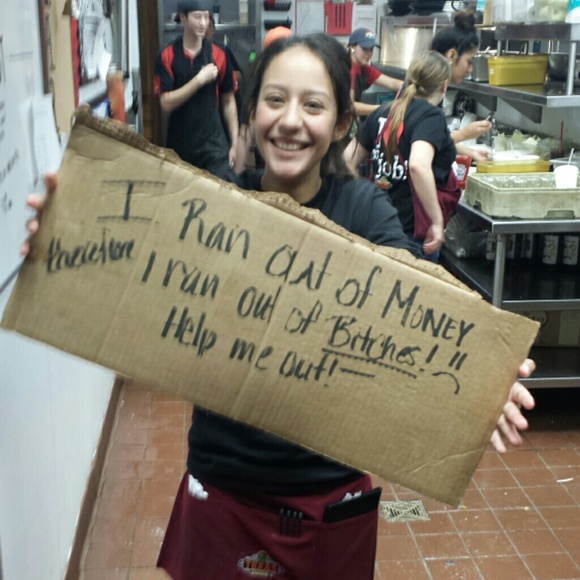 I Ran Out of MONEY
therefore I ran out of Bitches!!
Help me out!
job!
TEXAS